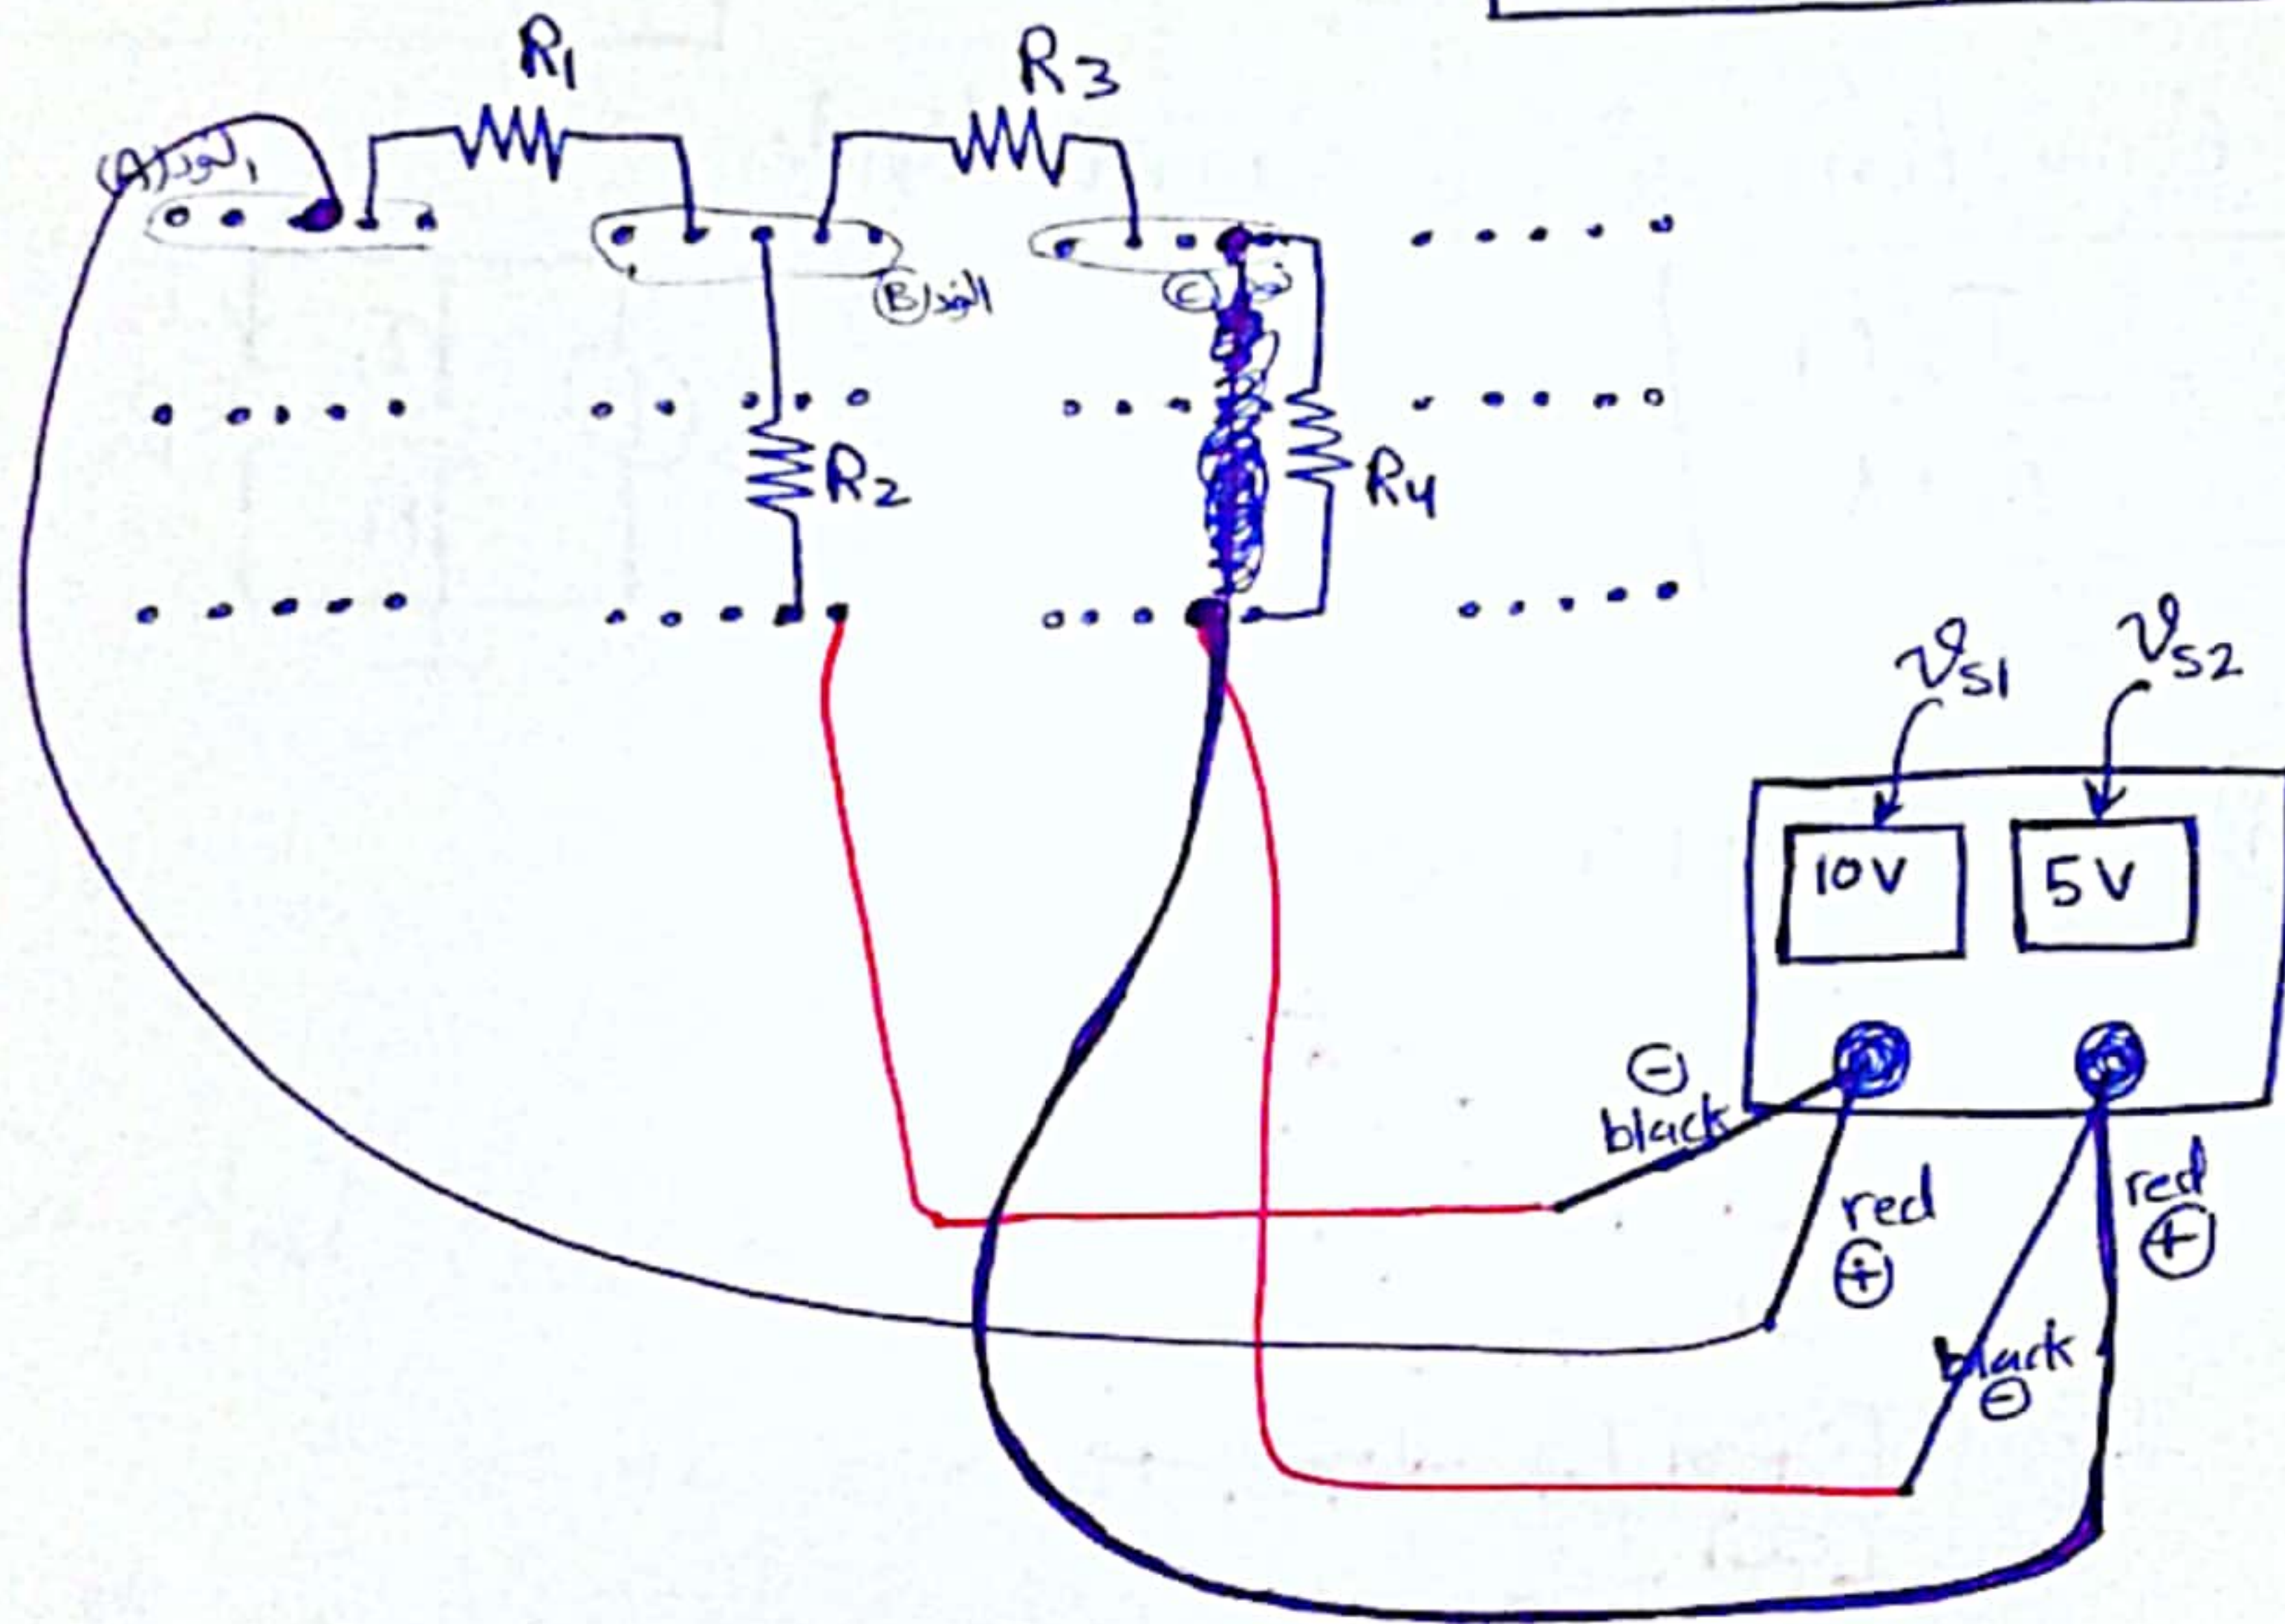 R1
R3
النود (A)
النود (B)
(C)
R2
R4
vS1
vS2
10V
5V
⊖
black
red
⊕
red
⊕
black
⊖